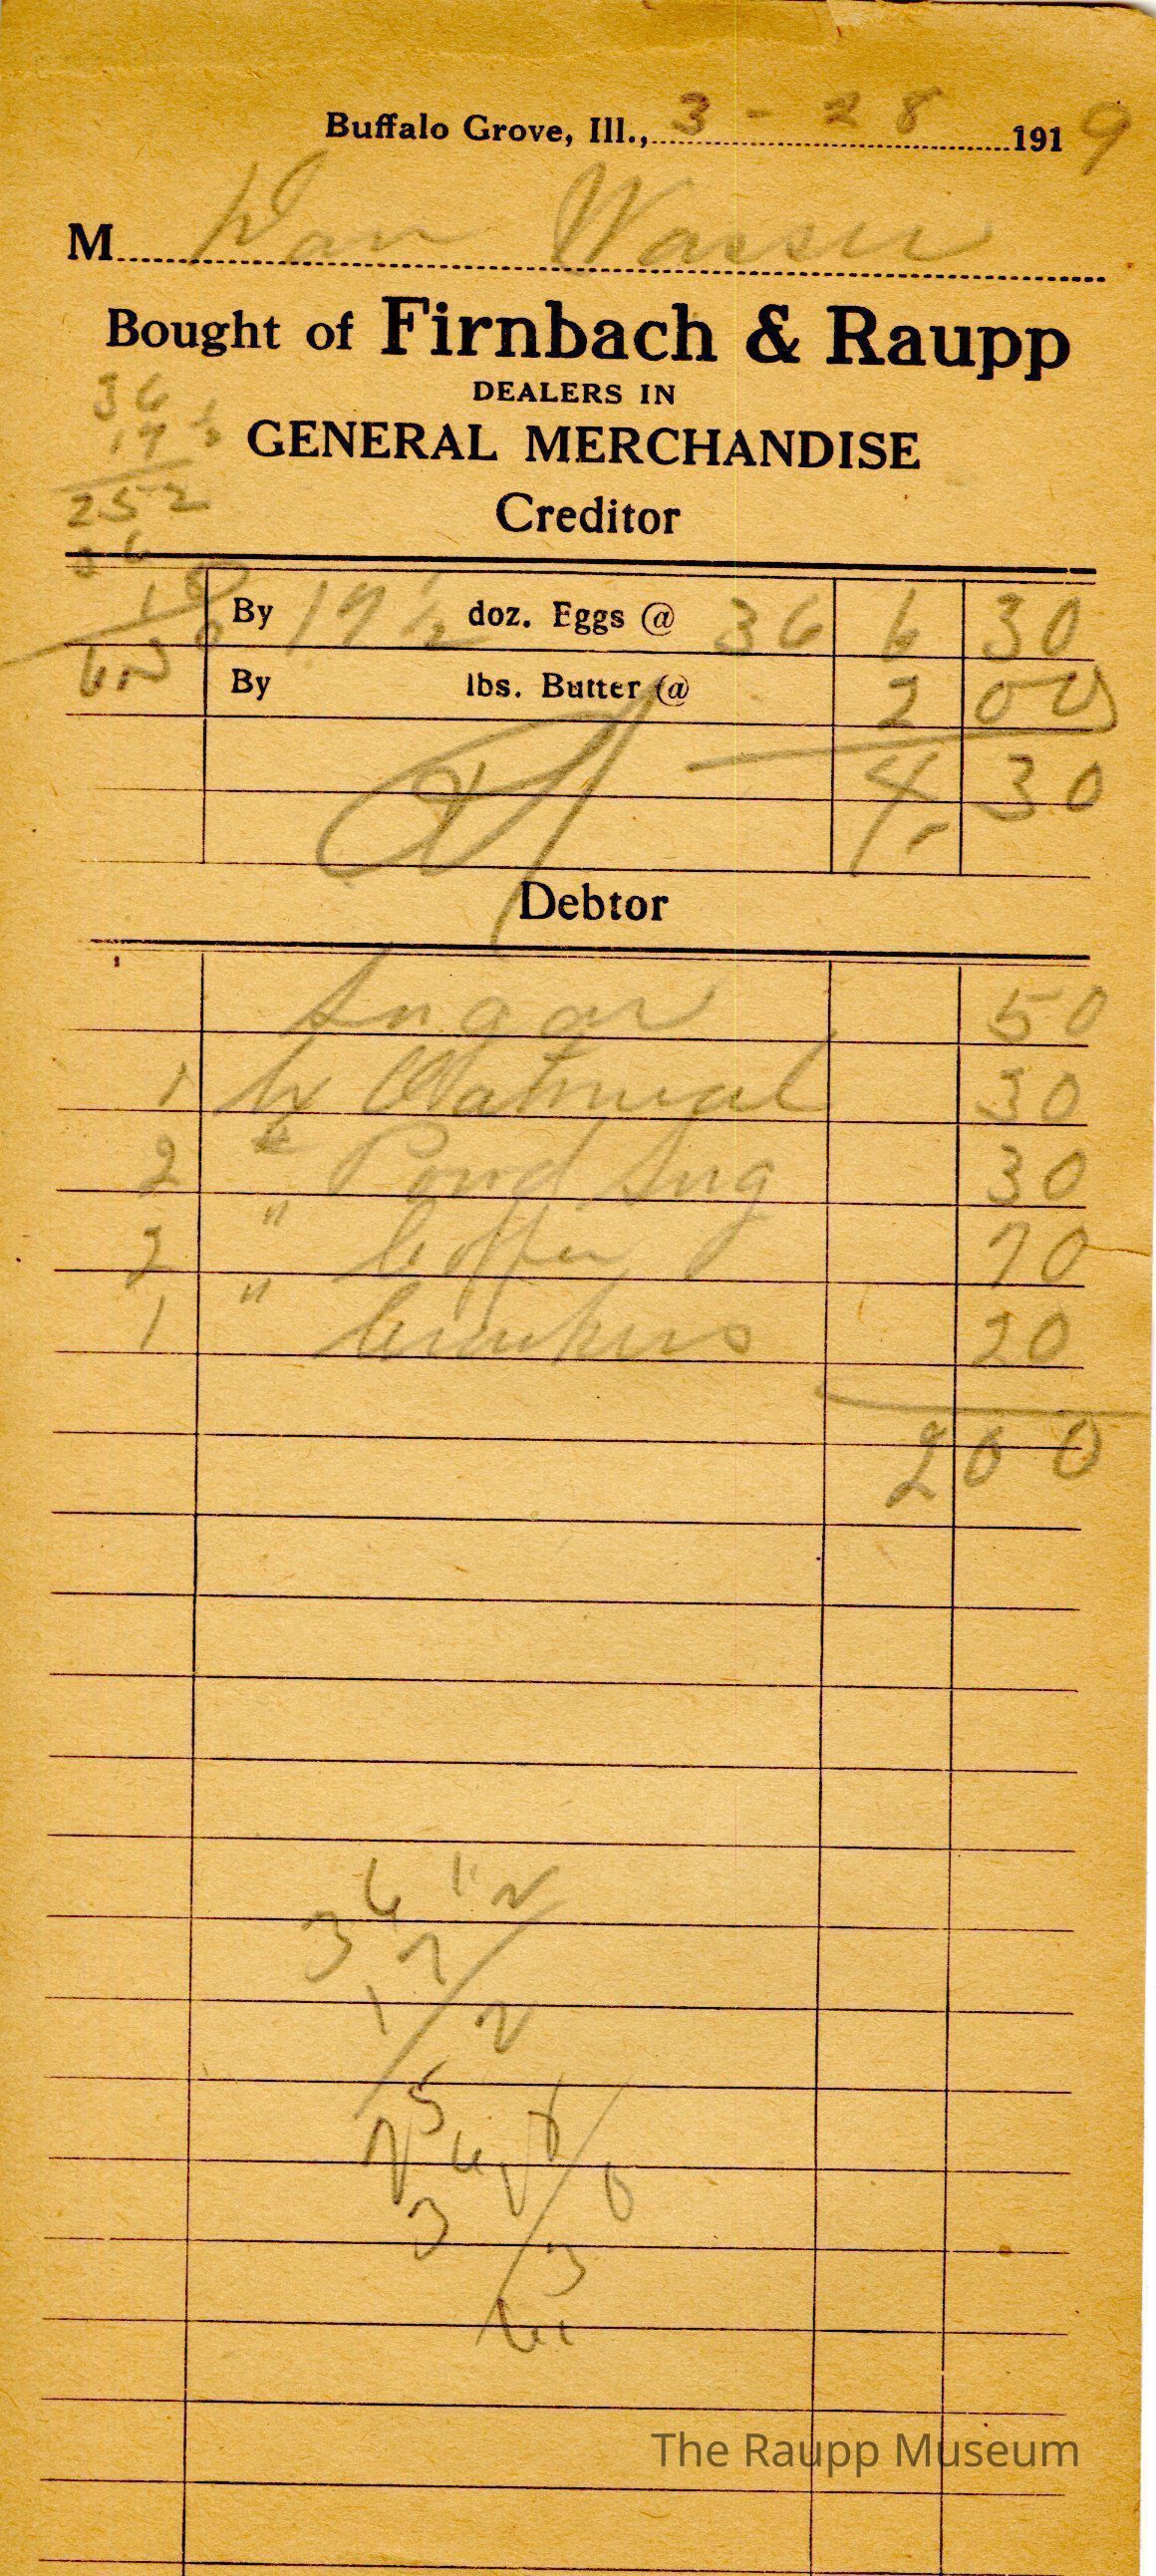 Buffalo Grove, Ill., 3 - 28 1919
M Dan Wasser
Bought of Firnbach & Raupp
DEALERS IN
GENERAL MERCHANDISE
Creditor
36
17 ½
252
36
18
6.30
By 17 ½ doz. Eggs @ 36 6 30
By lbs. Butter @ 2 00
4 30
Debtor
Sugar 50
1 Oatmeal 30
2 " Powd Sug 30
2 " Coffee 70
1 " Crackers 20
2 00
36
17 1/2
252
36
18
6.30
The Raupp Museum